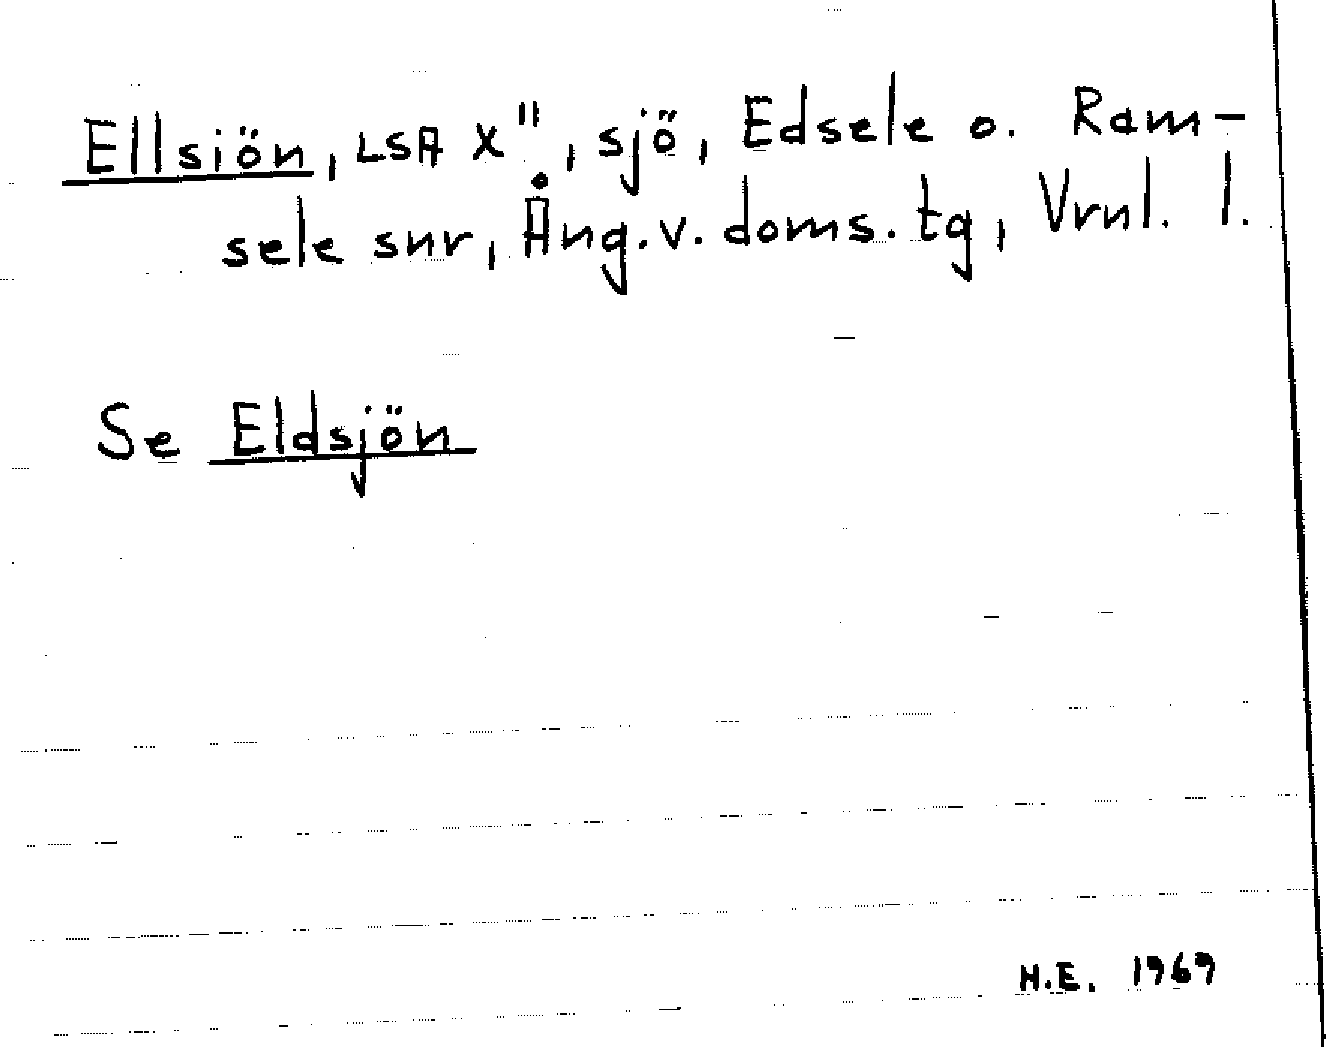 Ellsiön, LSA X", sjö, Edsele o. Ram-
sele snr, Ång.v. doms. tg, Vrnl. l.
Se Eldsjön
H.E. 1969